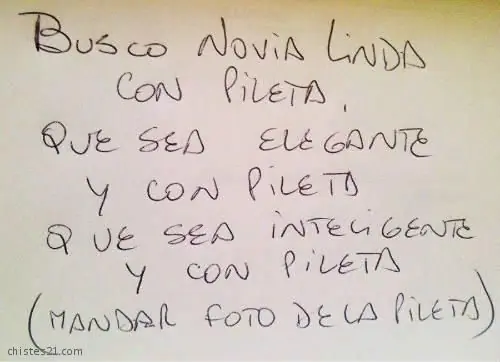 BUSCO NOVIA LINDA
CON PILETA.
QUE SEA ELEGANTE
Y CON PILETA
QUE SEA INTELIGENTE
Y CON PILETA
(MANDAR FOTO DE LA PILETA)
chistes21.com